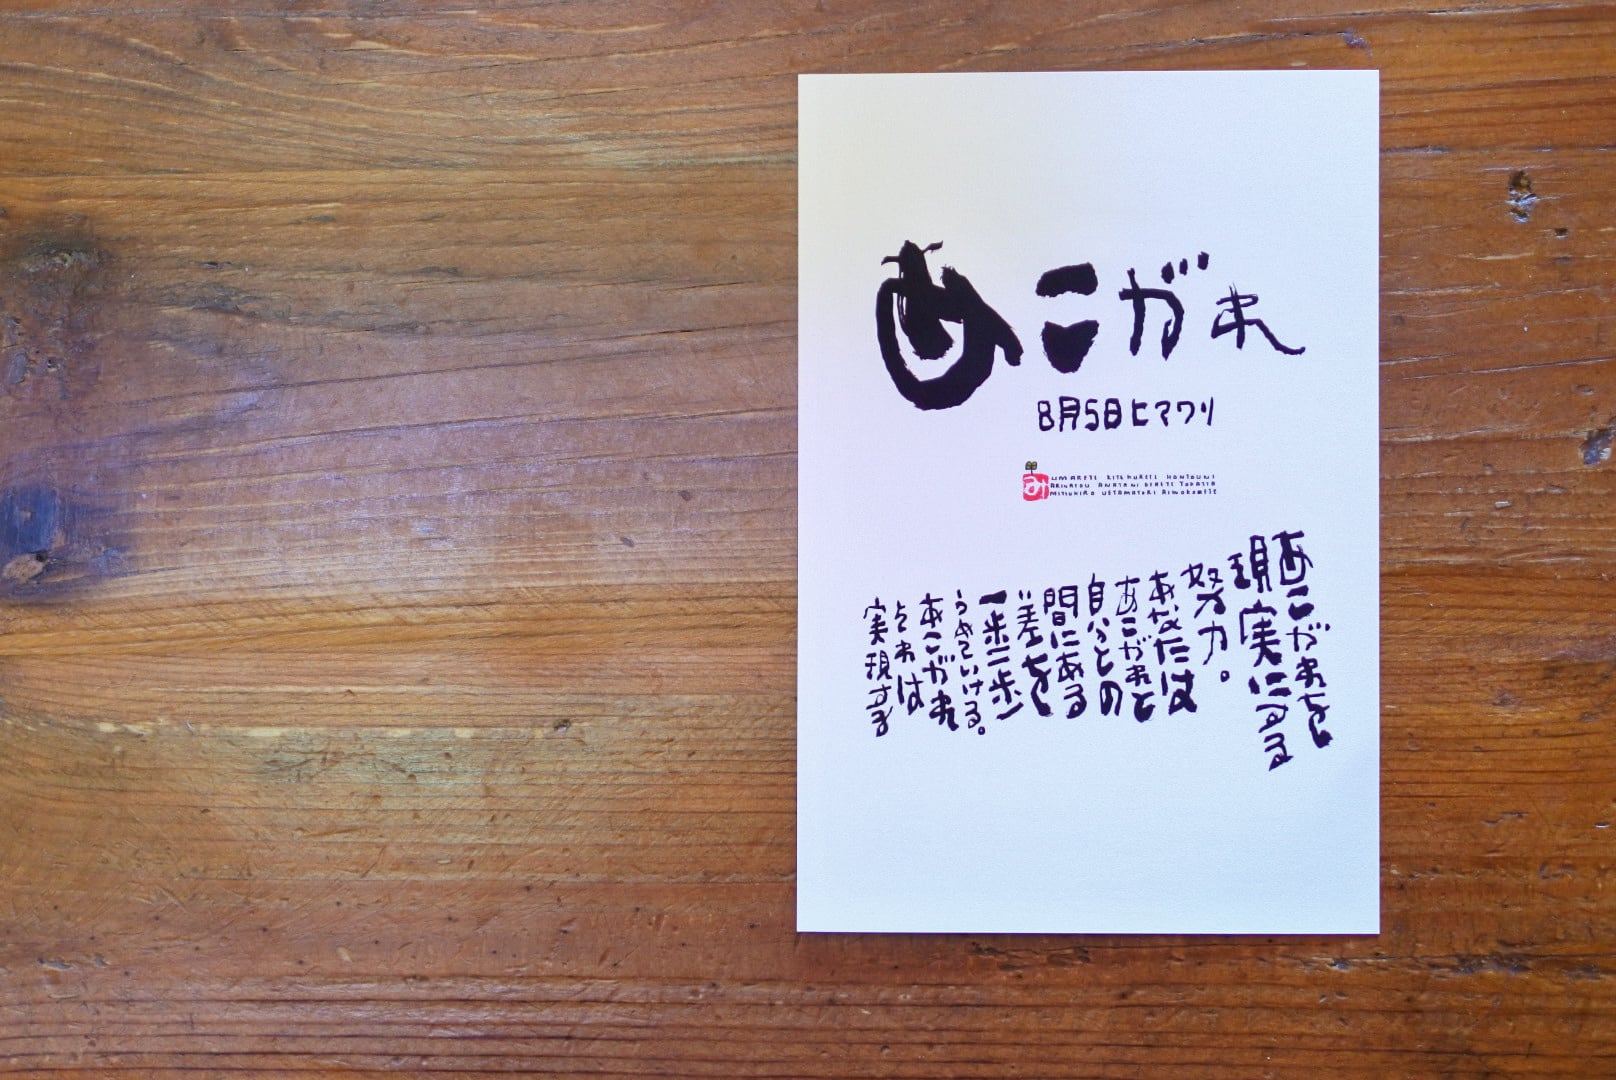 あこがれ
8月5日ヒマワリ
み
UMARETE KITEKURETE HONTOUNI
ARIGATOU ANATANI DEAETE YOKATTA
MITSUHIRO UETAMATUKI AINOKOMETE
あこがれを
現実にする
努力。
あなたは
あこがれと
自分との
間にある
差を
一歩一歩
うめていける。
あこがれ
それは
実現する